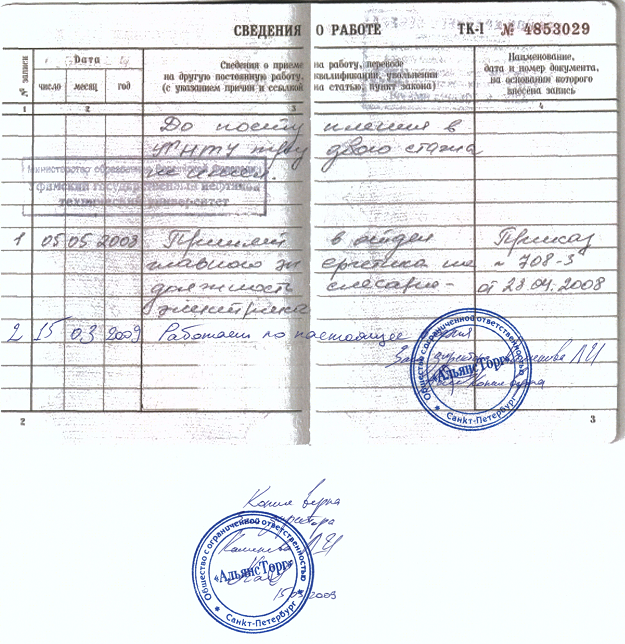 СВЕДЕНИЯ О РАБОТЕ ТК-I № 4853029
№ записи
Дата
число месяц год
Сведения о приеме на работу, переводе
на другую постоянную работу, квалификации, увольнении
(с указанием причин и ссылкой на статью, пункт закона)
Наименование,
дата и номер документа,
на основании которого
внесена запись
1 2 3 4
До поступления в
УГНТУ трудового стажа
не имеет.
Министерство образования
Уфимский государственный нефтяной
технический университет
1 05 05 2008 Принят в отдел Приказ
главного энергетика на № 708-3
должность слесаря- от 28.04.2008
электрика
2 15 03 2009 Работает по настоящее
время
Зам директора Каменева Л.И
Копия верна
Общество с ограниченной ответственностью
«АльянсТорг»
Санкт-Петербург
2 3
Копия верна
директора
Каменева Л.И
Общество с ограниченной ответственностью
«АльянсТорг»
Санкт-Петербург
15 03 2009